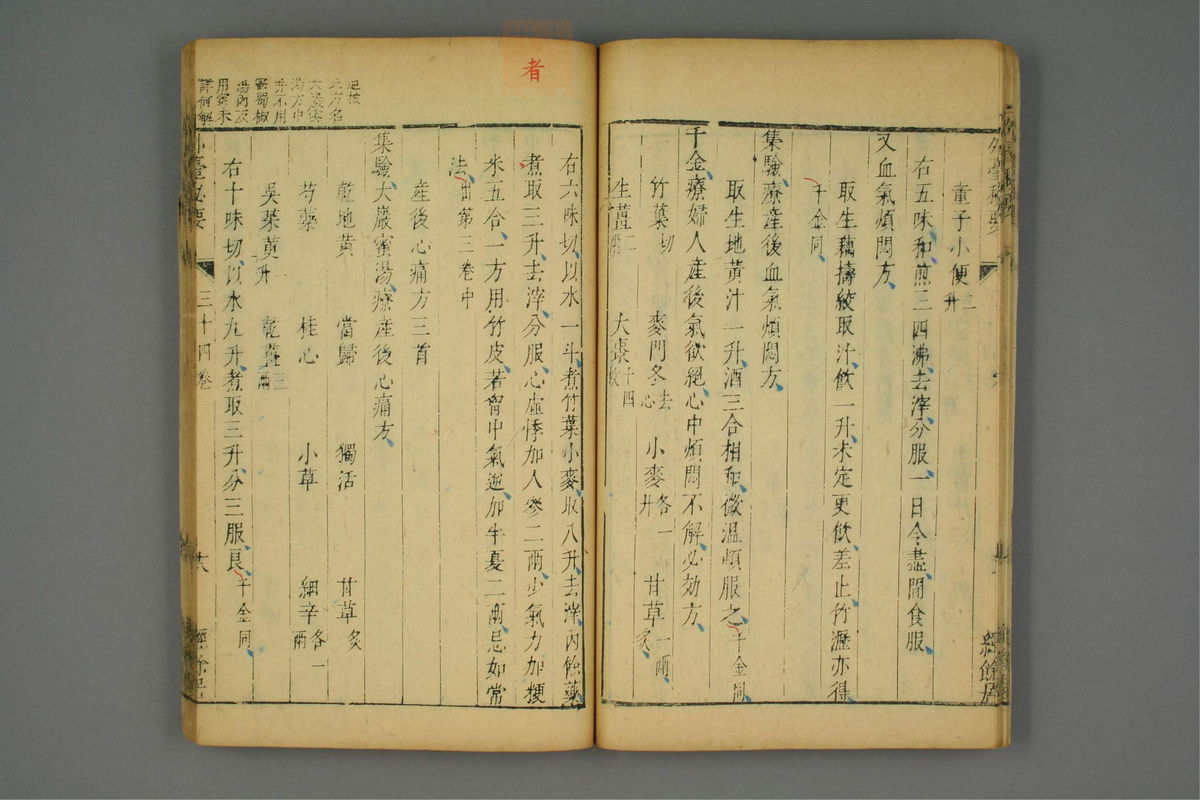 外臺秘要
經餘居
童子小便二升
右五味和煎三四沸去滓分服一日令盡閒食服
又血氣煩悶方
取生藕擣絞取汁飲一升未定更飲差止竹瀝亦得
千金同
集驗療產後血氣煩悶方
取生地黃汁一升酒三合相和微溫頓服之千金同
千金療婦人產後氣欲絕心中煩悶不解必効方
竹葉切 麥門冬去心 小麥各一升 甘草一兩炙
生薑二兩 大棗十四枚
者
右六味切以水一斗煮竹葉小麥取八升去滓內餘藥
煮取三升去滓分服心虛悸加人參二兩少氣力加粳
米五合一方用竹皮若胷中氣逆加半夏二兩忌如常
法出第三卷中
產後心痛方三首
集驗大巖蜜湯療產後心痛方
乾地黃 當歸 獨活 甘草炙
芍藥 桂心 小草 細辛各一兩
吳茱萸一升 乾薑三兩
右十味切以水九升煮取三升分三服良千金同
之方名
大巖蜜
湯方中
并不用
蜜蜀椒
湯內反
用蜜未
詳何解
外臺秘要 三十四卷 十六 經餘居